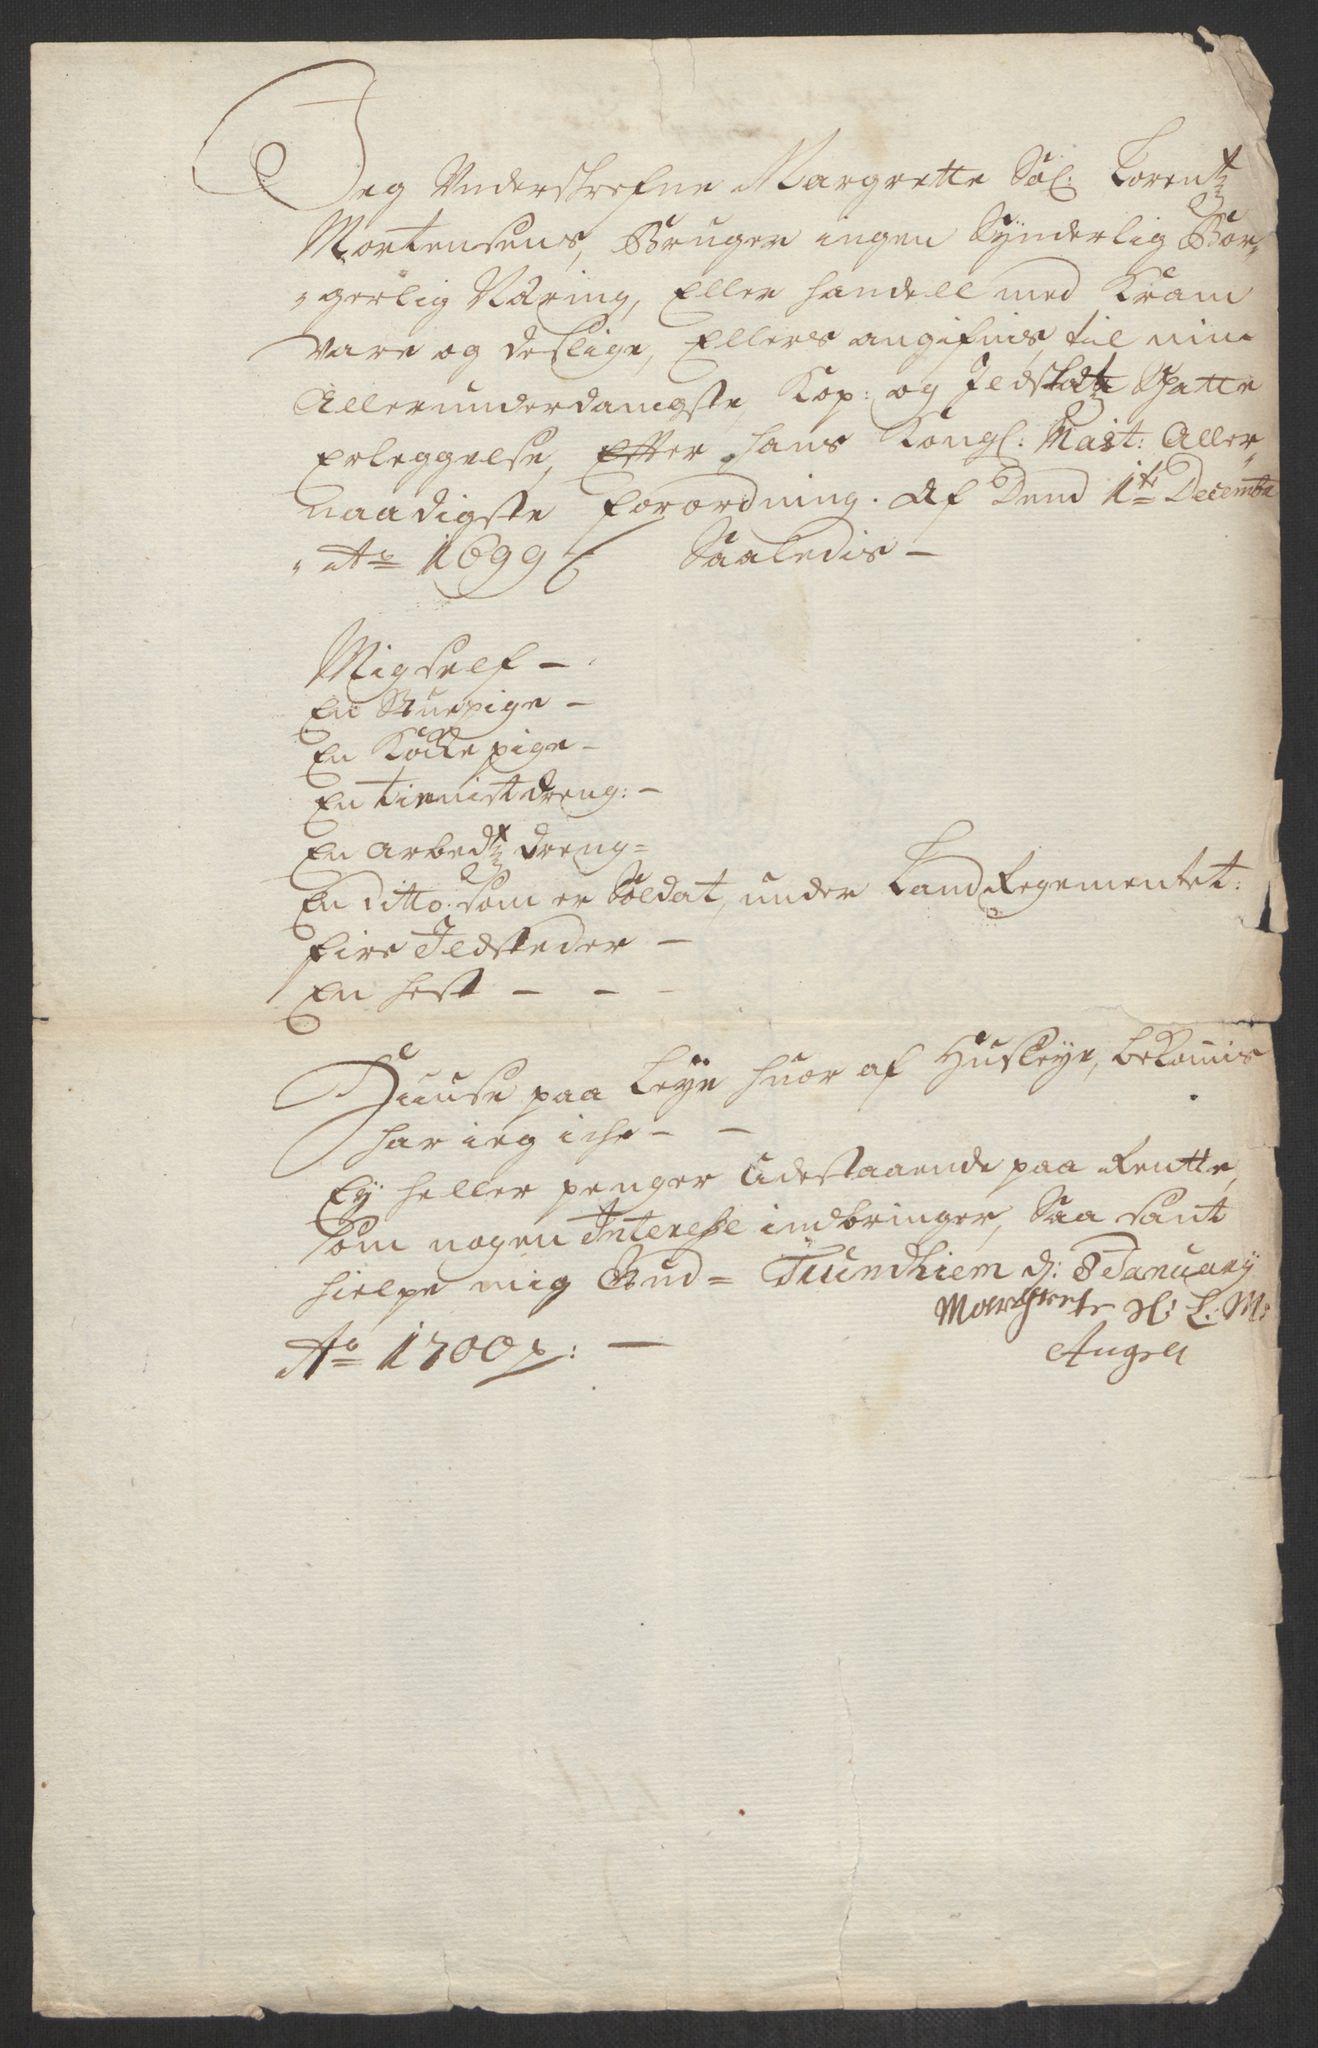 Jeg Underskrefne Margrette Sal: Lorentz
Mortensens, Bruger ingen Synderlig Bor-
-gerlig Næring, Eller handell med Kram
Vare og deslige, Ellers angifuis til min
Allerunderdanigste, Kop: og Ildstedtz Skatte
Erleggelse, Effter hans Kongl: Maist: Aller-
naadigste forordning. Af Dend 1te Decembr
Ao 1699 / Saaledis -
Mig self -
En Stuepige -
En Kocke pige -
En tienist dreng: -
En arbedtz dreng =
En ditto: som er Soldat, under Land Regementet:
fire Ildsteder -
En hest - - -
Huuse paa Leye huor af Husleye, bekomis
har ieg iche - -
Ey heller penger Udestaaende paa Rentte,
som nogen Interesse indbringer, Saa sant
hielpe mig Gud = Trundhiem d: 8 January
Margrete Sl: L: M:
Ao 1700 p: - Angell